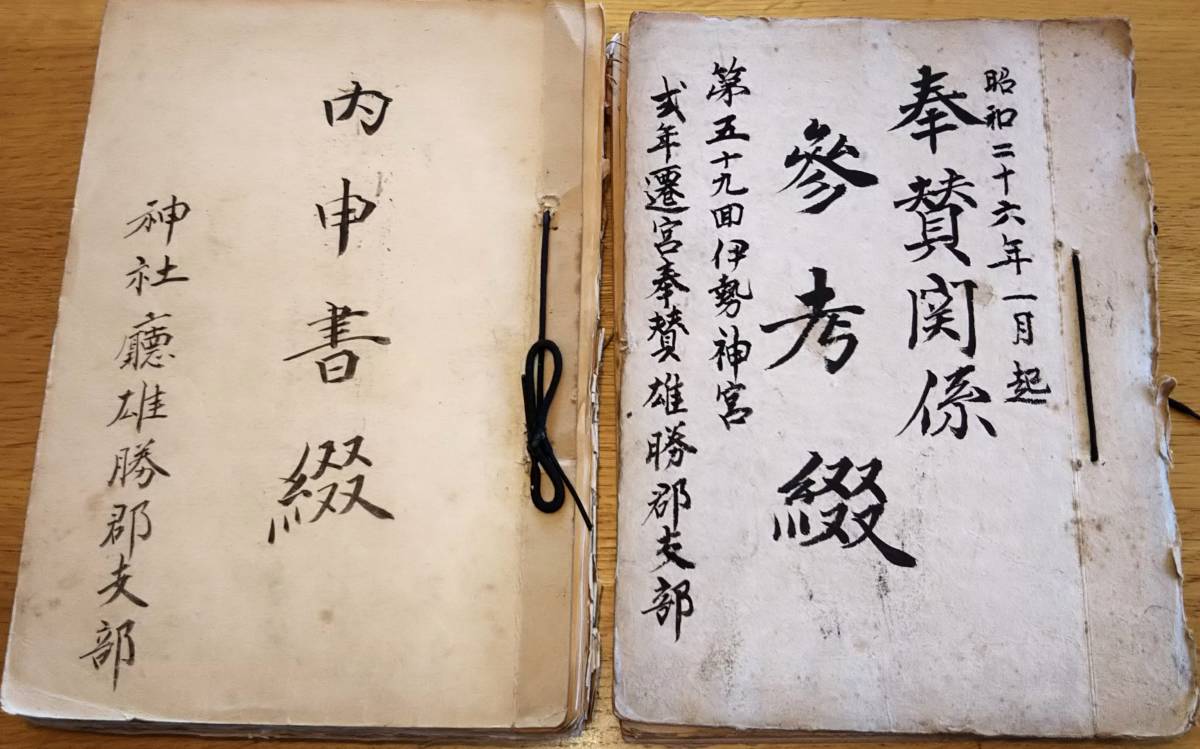 昭和二十六年一月起
奉賛関係
參考綴
第五十九回伊勢神宮
式年遷宮奉賛雄勝郡支部
内申書綴
神社廳雄勝郡支部